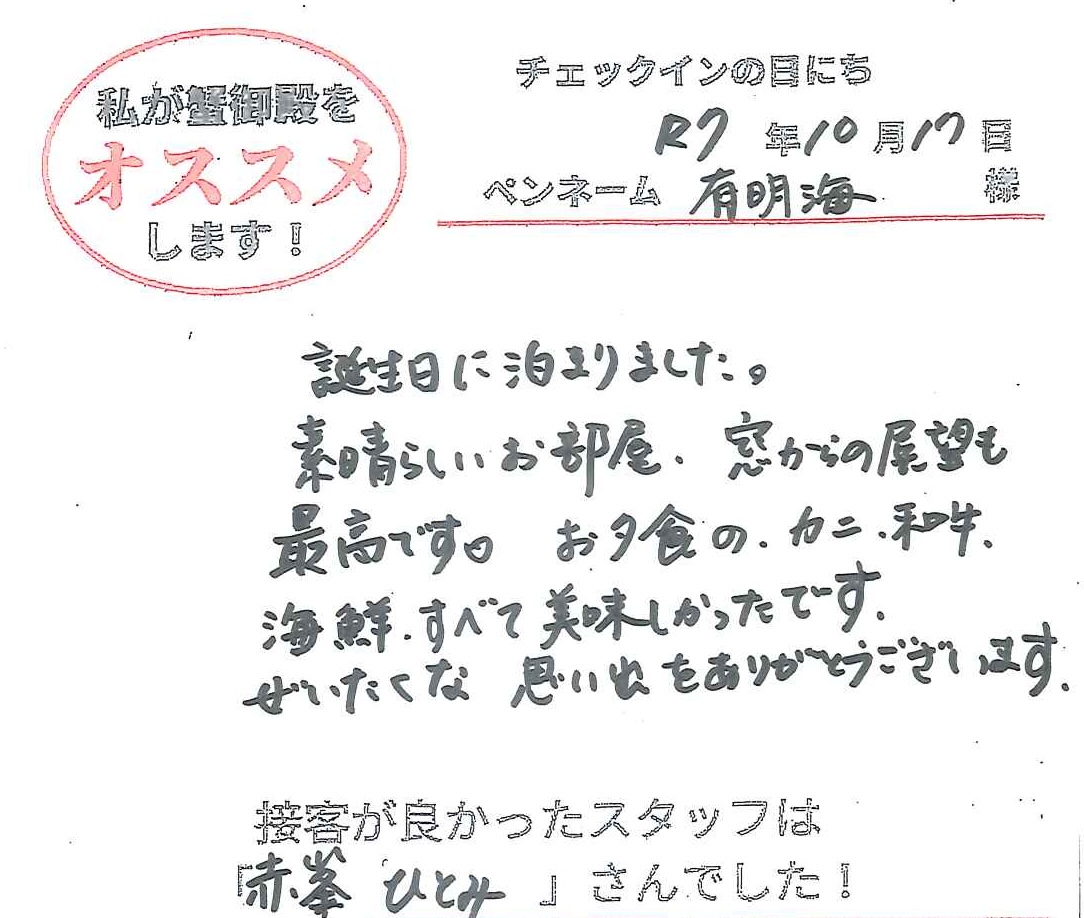 私が蟹御殿を
オススメ
します！
チェックインの日にち
R7 年10月17日
ペンネーム 有明海 様
誕生日に泊まりました。
素晴らしいお部屋、窓からの展望も
最高です。お夕食の、カニ、和牛、
海鮮、すべて美味しかったです。
ぜいたくな思い出をありがとうございます。
接客が良かったスタッフは
「赤峯 ひとみ 」さんでした！